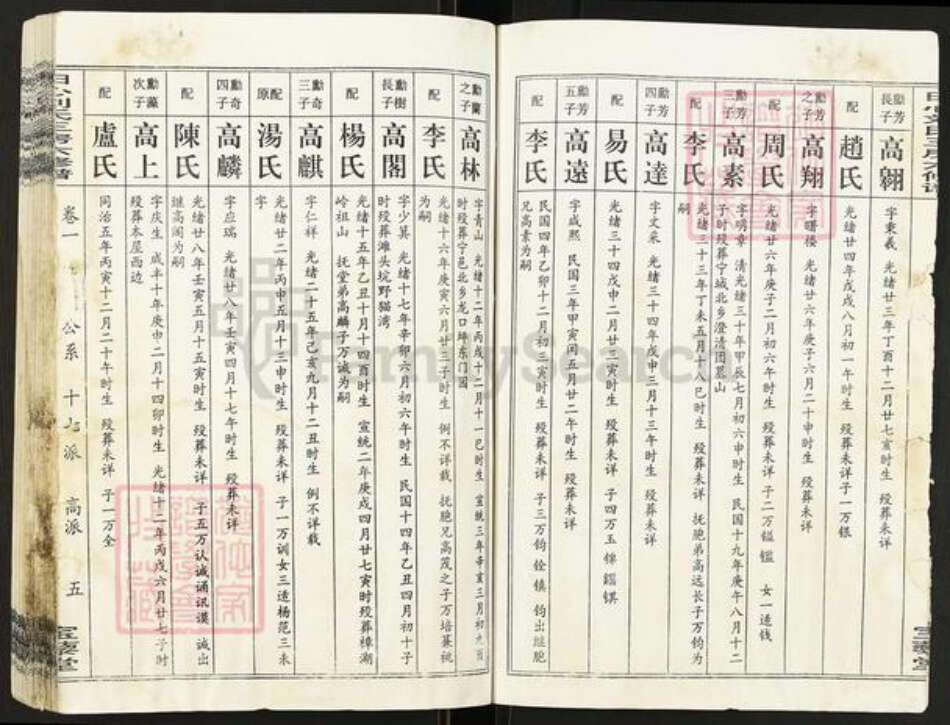 勳芳長子 高翱 字秉羲 光緒廿三年丁酉十二月廿七亥時生 殁葬未详
配 趙氏 光緒廿四年戊戌八月初一午時生 殁葬未详子一万银
勳芳之子 高翔 字曙楼 光緒廿六年庚子六月二十申時生 殁葬未详
配 周氏 光緒廿六年庚子二月初六午時生 殁葬未详 子二万镒鑑 女一适钱
勳芳三子 高素 字明章 清光緒三十年甲辰七月初六申時生 民国十九年庚午八月十二
子时殁葬宁城北乡澄清团墓山
配 李氏 光緒三十三年丁未五月十八巳时生 殁葬未详 抚胞弟高远长子万钧为
嗣
勳芳四子 高達 字文采 光緒三十四年戊申三月十三年时生 殁葬未详
配 易氏 光緒三十四戊申二月初五子时生 殁葬未详 子四万玉
勳芳五子 高遠 字咸熙 民国三年甲寅闰五月廿二年时生 殁葬未详
配 李氏 民国四年乙卯十二月初三寅时生 殁葬未详 子三万钧 铨 镇 钧出继胞
兄高素为嗣
勳蘭之子 高林 字青山 光緒十二年丙戌十二月十一巳时生 宣統三年辛亥三月初九
时殁葬宁邑北乡龙口坪东门园
配 李氏 光緒十六年庚寅六月廿三子时生 例不详载 抚胞兄高茂之子万培兼祧
为嗣
勳樹長子 高閣 字少箕 光緒十七年辛卯六月初六年时生 民国十四年乙丑四月初十子
时殁葬滩头坑野猫湾
配 楊氏 光緒十五年乙丑十月十四酉时生 宣統二年庚戌四月廿七寅时殁葬樟湖
岭祖山 抚堂弟高麟子万诚为嗣
勳奇三子 高麒 字仁祥 光緒二十五年己亥九月十二丑时生 例不详载
原配 湯氏 光緒廿二年丙申五月十三申时生 殁葬未详 子一万训女三适杨范三未
字
勳奇四子 高麟 字应瑞 光緒廿八年壬寅四月十七年时生 殁葬未详
配 陳氏 光緒廿八年壬寅五月十五寅时生 殁葬未详 子五万认诚诵讯谟 诚出
继高阁为嗣
勳藻次子 高上 字庆生 咸丰十年庚申二月十四卯时生 光緒十二年丙戌六月廿七子时
殁葬本屋西边
配 盧氏 同治五年丙寅十二月二十年时生 殁葬未详 子一万全
卷一 公系 十七派 高派 五
FamilySearch